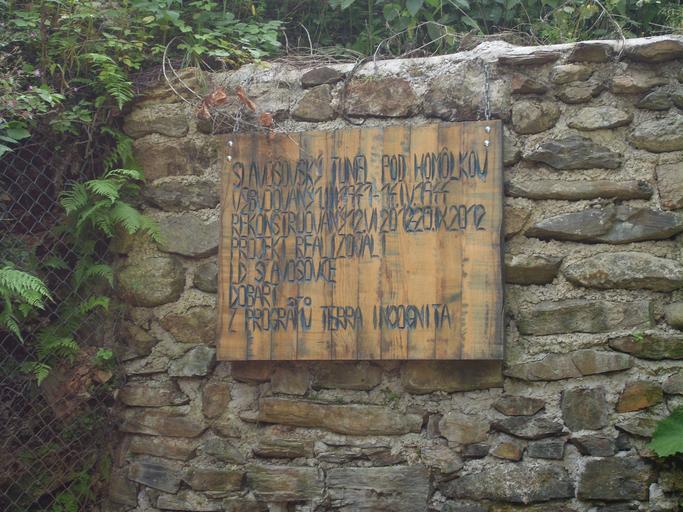 SLAVOŠOVSKÝ TUNEL POD HOMÔLKOU
VYBUDOVANÝ
REKONŠTRUOVANÝ 12.VI.2012-20.IX.2012
PROJEKT REALIZOVALI
LD SLAVOŠOVCE
DOBART
Z PROGRAMU TERRA INCOGNITA